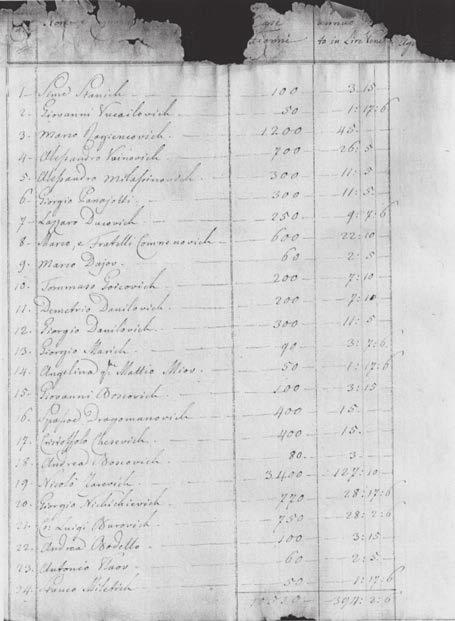 Nome
annuo
to in Lire Vene
1. Simè Stanich 100 3:15
2. Giovanni Vucailovich 50 1:17:6
3. Marco 1200 45
4. Alessandro Vainovich 700 26:5
5. Alessandro 300 11:5
6. Giorgio Panajotti 300 11:5
7. Lazzaro Ducovich 250 9:7:6
8. Marco, e Fratelli Comnenovich 600 22:10
9. Marco Dajov 60 2:5
10. Tommaso Goicovich 200 7:10
11. Demetrio Danilovich 200 7:10
12. Giorgio Danilovich 300 11:5
13. Giorgio Marich 90 3:7:6
14. Angelina qm Mattio Miov 50 1:17:6
15. Giovanni Boscovich 100 3:15
16. Dragomanovich 400 15
17. Cherevich 400 15
18. Andrea Boscovich 80 3
19. Nicolò 3400 127:10
20. Giorgio Nichichievich 770 28:17:6
21. Co: Luigi Burovich 750 28:2:6
22. Andrea Bodetto 100 3:15
23. Antonio Vlaov 60 2:5
24. Stanco Miletich 50 1:17:6
394:2:6